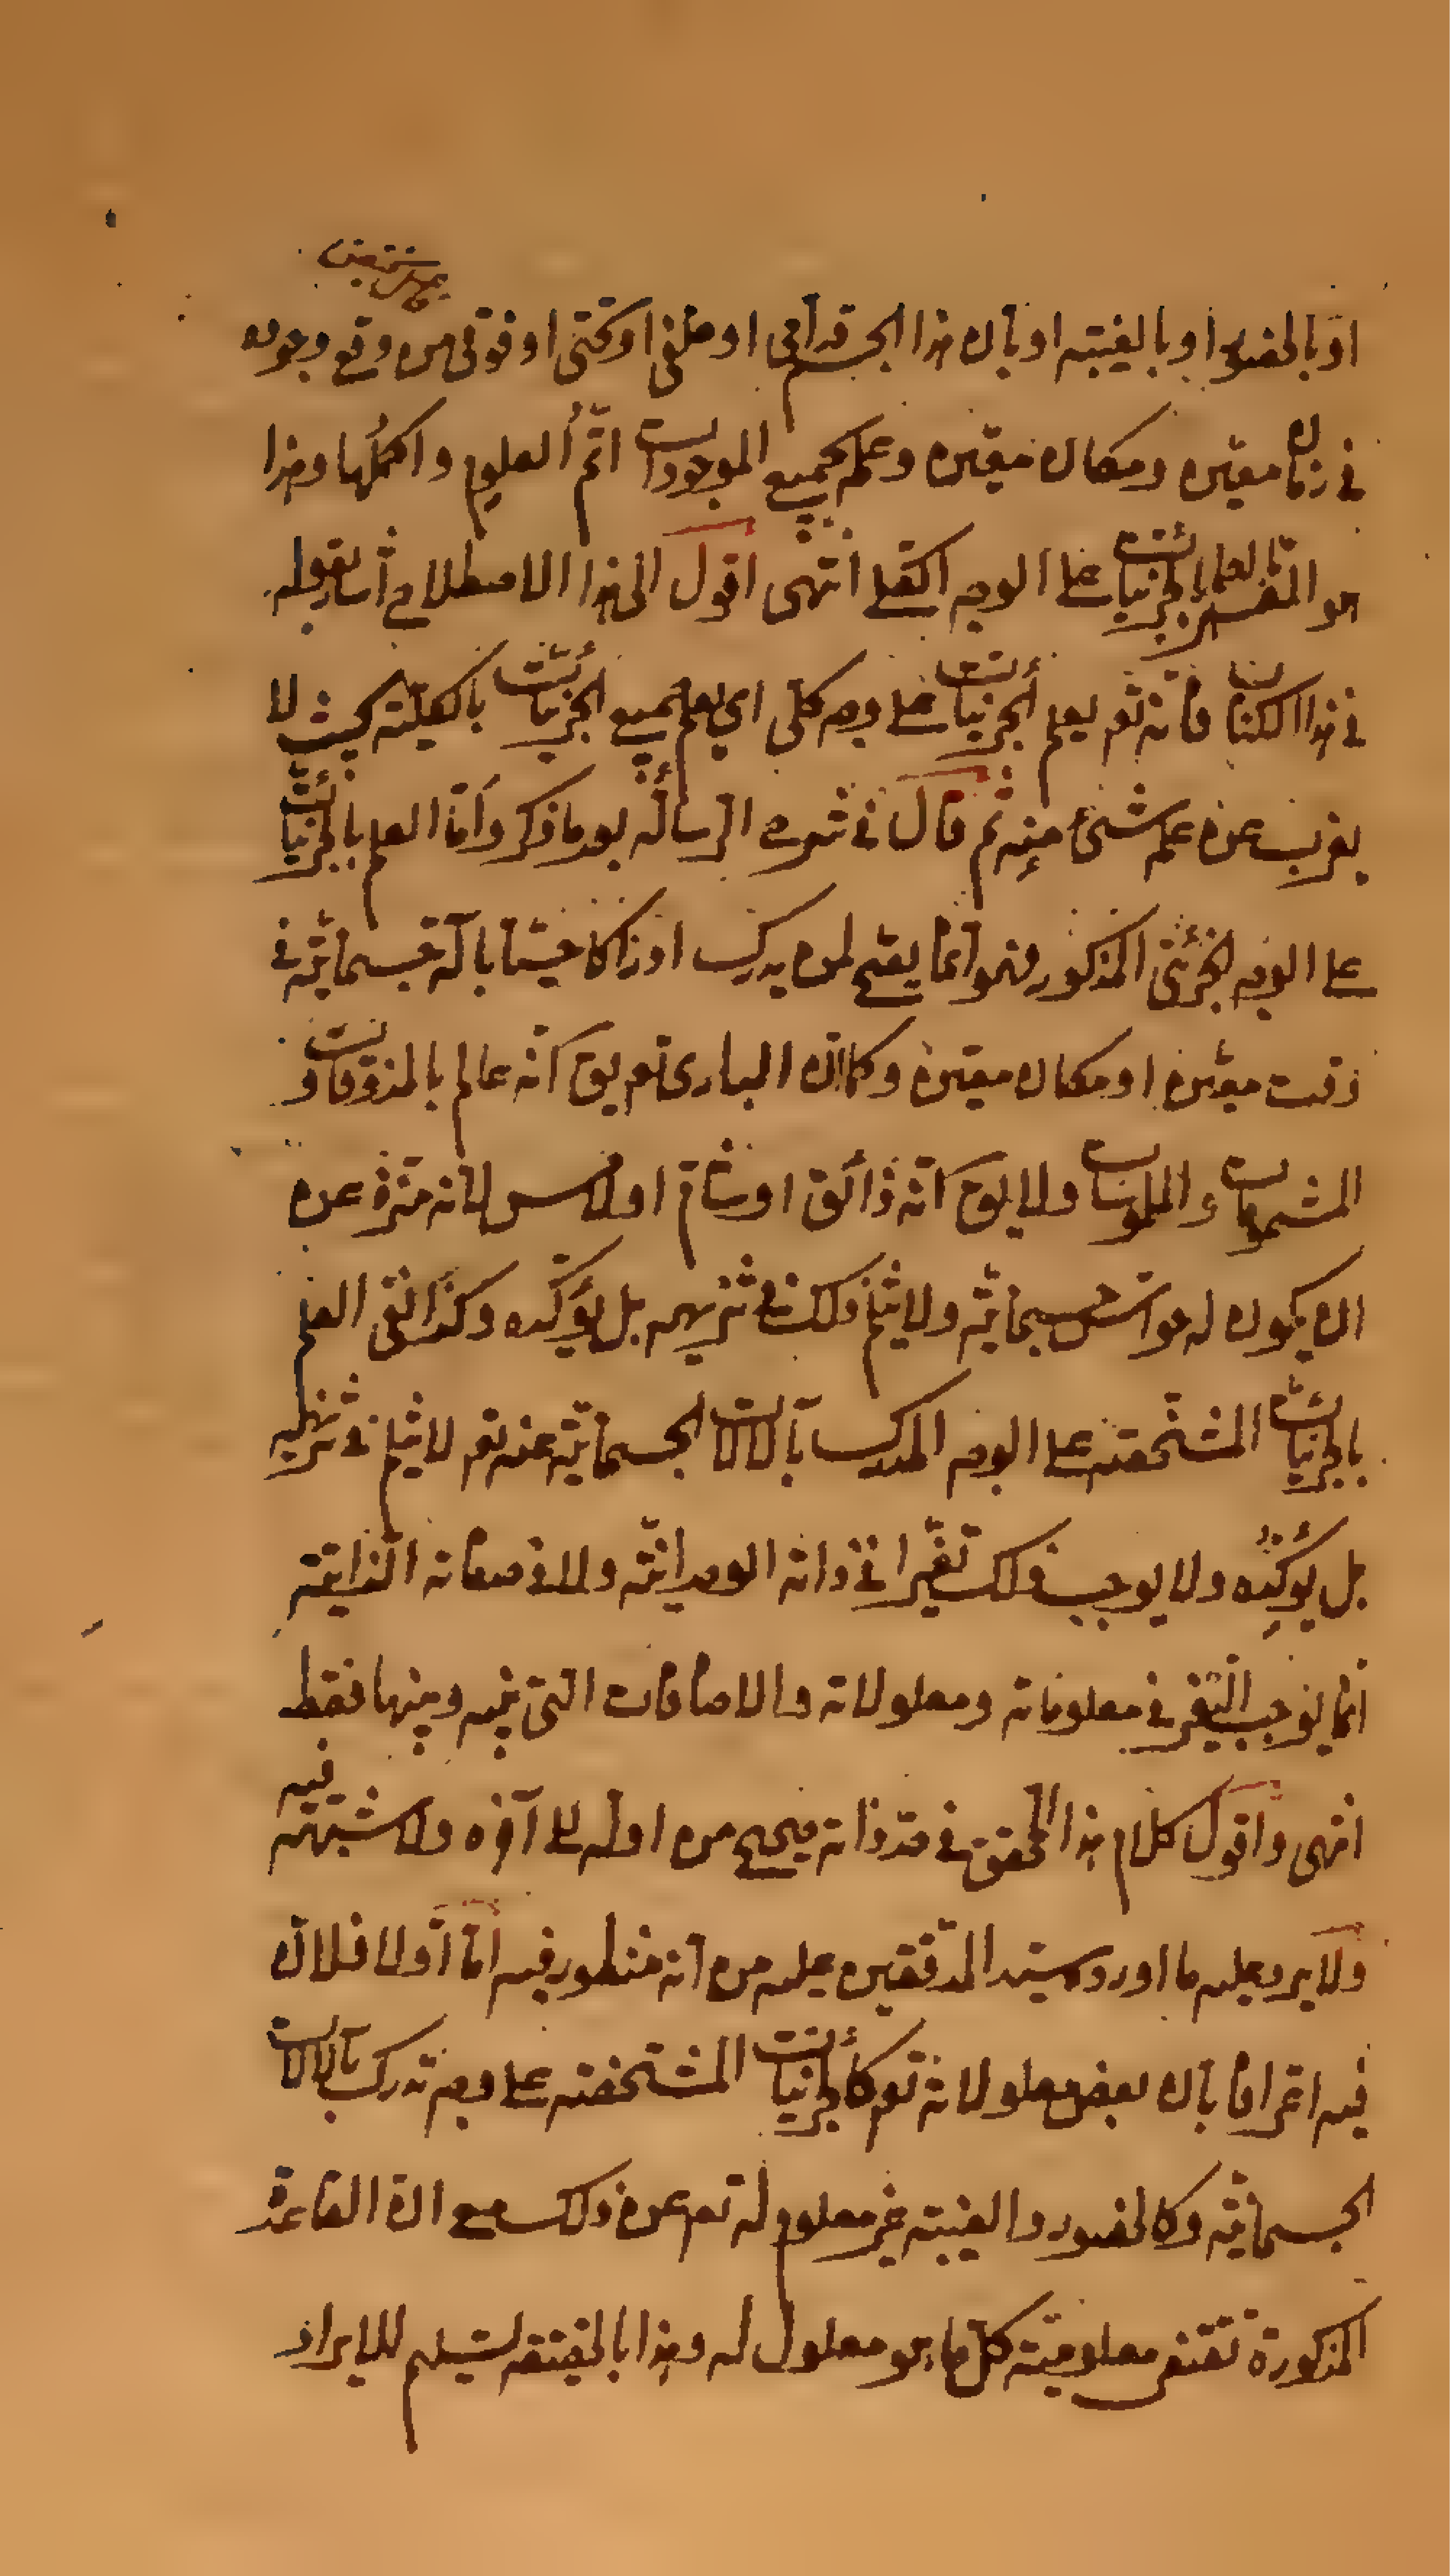 او بالحضور او بالغيبة او بان هذا الجسم قدامى او خلفى او تحتى او فوقى من وقع وجوده
فى زمان معين ومكان معين وعلمه بجميع الموجودات اتم العلوم واكملها وهذا
هو المفسر بالعلم بالجزئيات على الوجه الكلى انتهى اقول الى هذا الاصطلاح اشار بقوله
فى هذا الكتاب فانه تع يعلم الجزئيات على وجه كلى اى يعلم جميع الجزئيات بالكلية بحيث لا
يعزب عن علمه شئ منه ثم قال فى شرح الرسالة بعد ما ذكر واما العلم بالجزئيات
على الوجه الجزئى المذكور فهو انما يصح لمن يدرك ادراكا حسيا بآلة جسمانية فى
وقت معين او مكان معين وكما ان البارى تع يق انه عالم بالمذوقات و
المشمومات والملموسات ولا يق انه ذائق او شام او لامس لانه منزه عن
ان يكون له حواس جسمانية ولا يثلم ذلك فى تنزيهه بل يؤكده وكذا نفى العلم
بالجزئيات المشخصة على الوجه المدرك بآلالات الجسمانية عنه تع لا يثلم فى تنزيهه
بل يؤكده ولا يوجب ذلك تغيرا فى ذاته الوحدانية ولا فى صفاته الذاتية
انما يوجب التغير فى معلوماته ومعلولاته والاضافات التى بينه وبينها فقط
انتهى واقول كلام هذا المحقق فى حد ذاته صحيح من اوله الى آخره ولا شبهة فيه
ولا يرد عليه ما اورده سيد المدققين عليه من انه منظور فيه اما اولا فلان
فيه اعترافا بان بعض معلولاته تع كالجزئيات المشخصة على وجه تدرك بآلالات
الجسمانية وكالحضور والغيبة غير معلوم له تع عن ذلك مع ان القاعدة
المذكورة تقتضى معلومية كل ما هو معلول له وهذا بالحقيقة تسليم للايراد